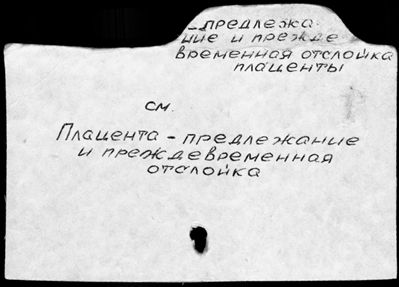 – предлежа
ние и прежде
временная отслойка
плаценты
см.
Плацента – предлежание
и преждевременная
отслойка